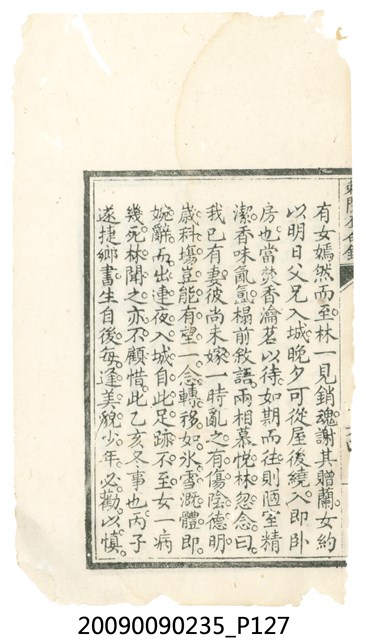 有女嫣然而至林一見銷魂謝其贈蘭女約
以明日父兄入城晚夕可從屋後繞入即卧
房也當焚香瀹茗以待如期而往則洞室精
潔香味亂熏榻前敘語兩相慕悅林忽念曰
我已有妻彼尚未嫁一時亂之有傷陰德明
歲科塲豈能有望一念轉移如氷雪溉體即
婉辭而出連夜入城自此足跡不至女一病
幾死林聞之亦不顧惜此乙亥冬事也丙子
遂捷鄉書生自後每逢美貌少年必勸以慎
20090090235_P127